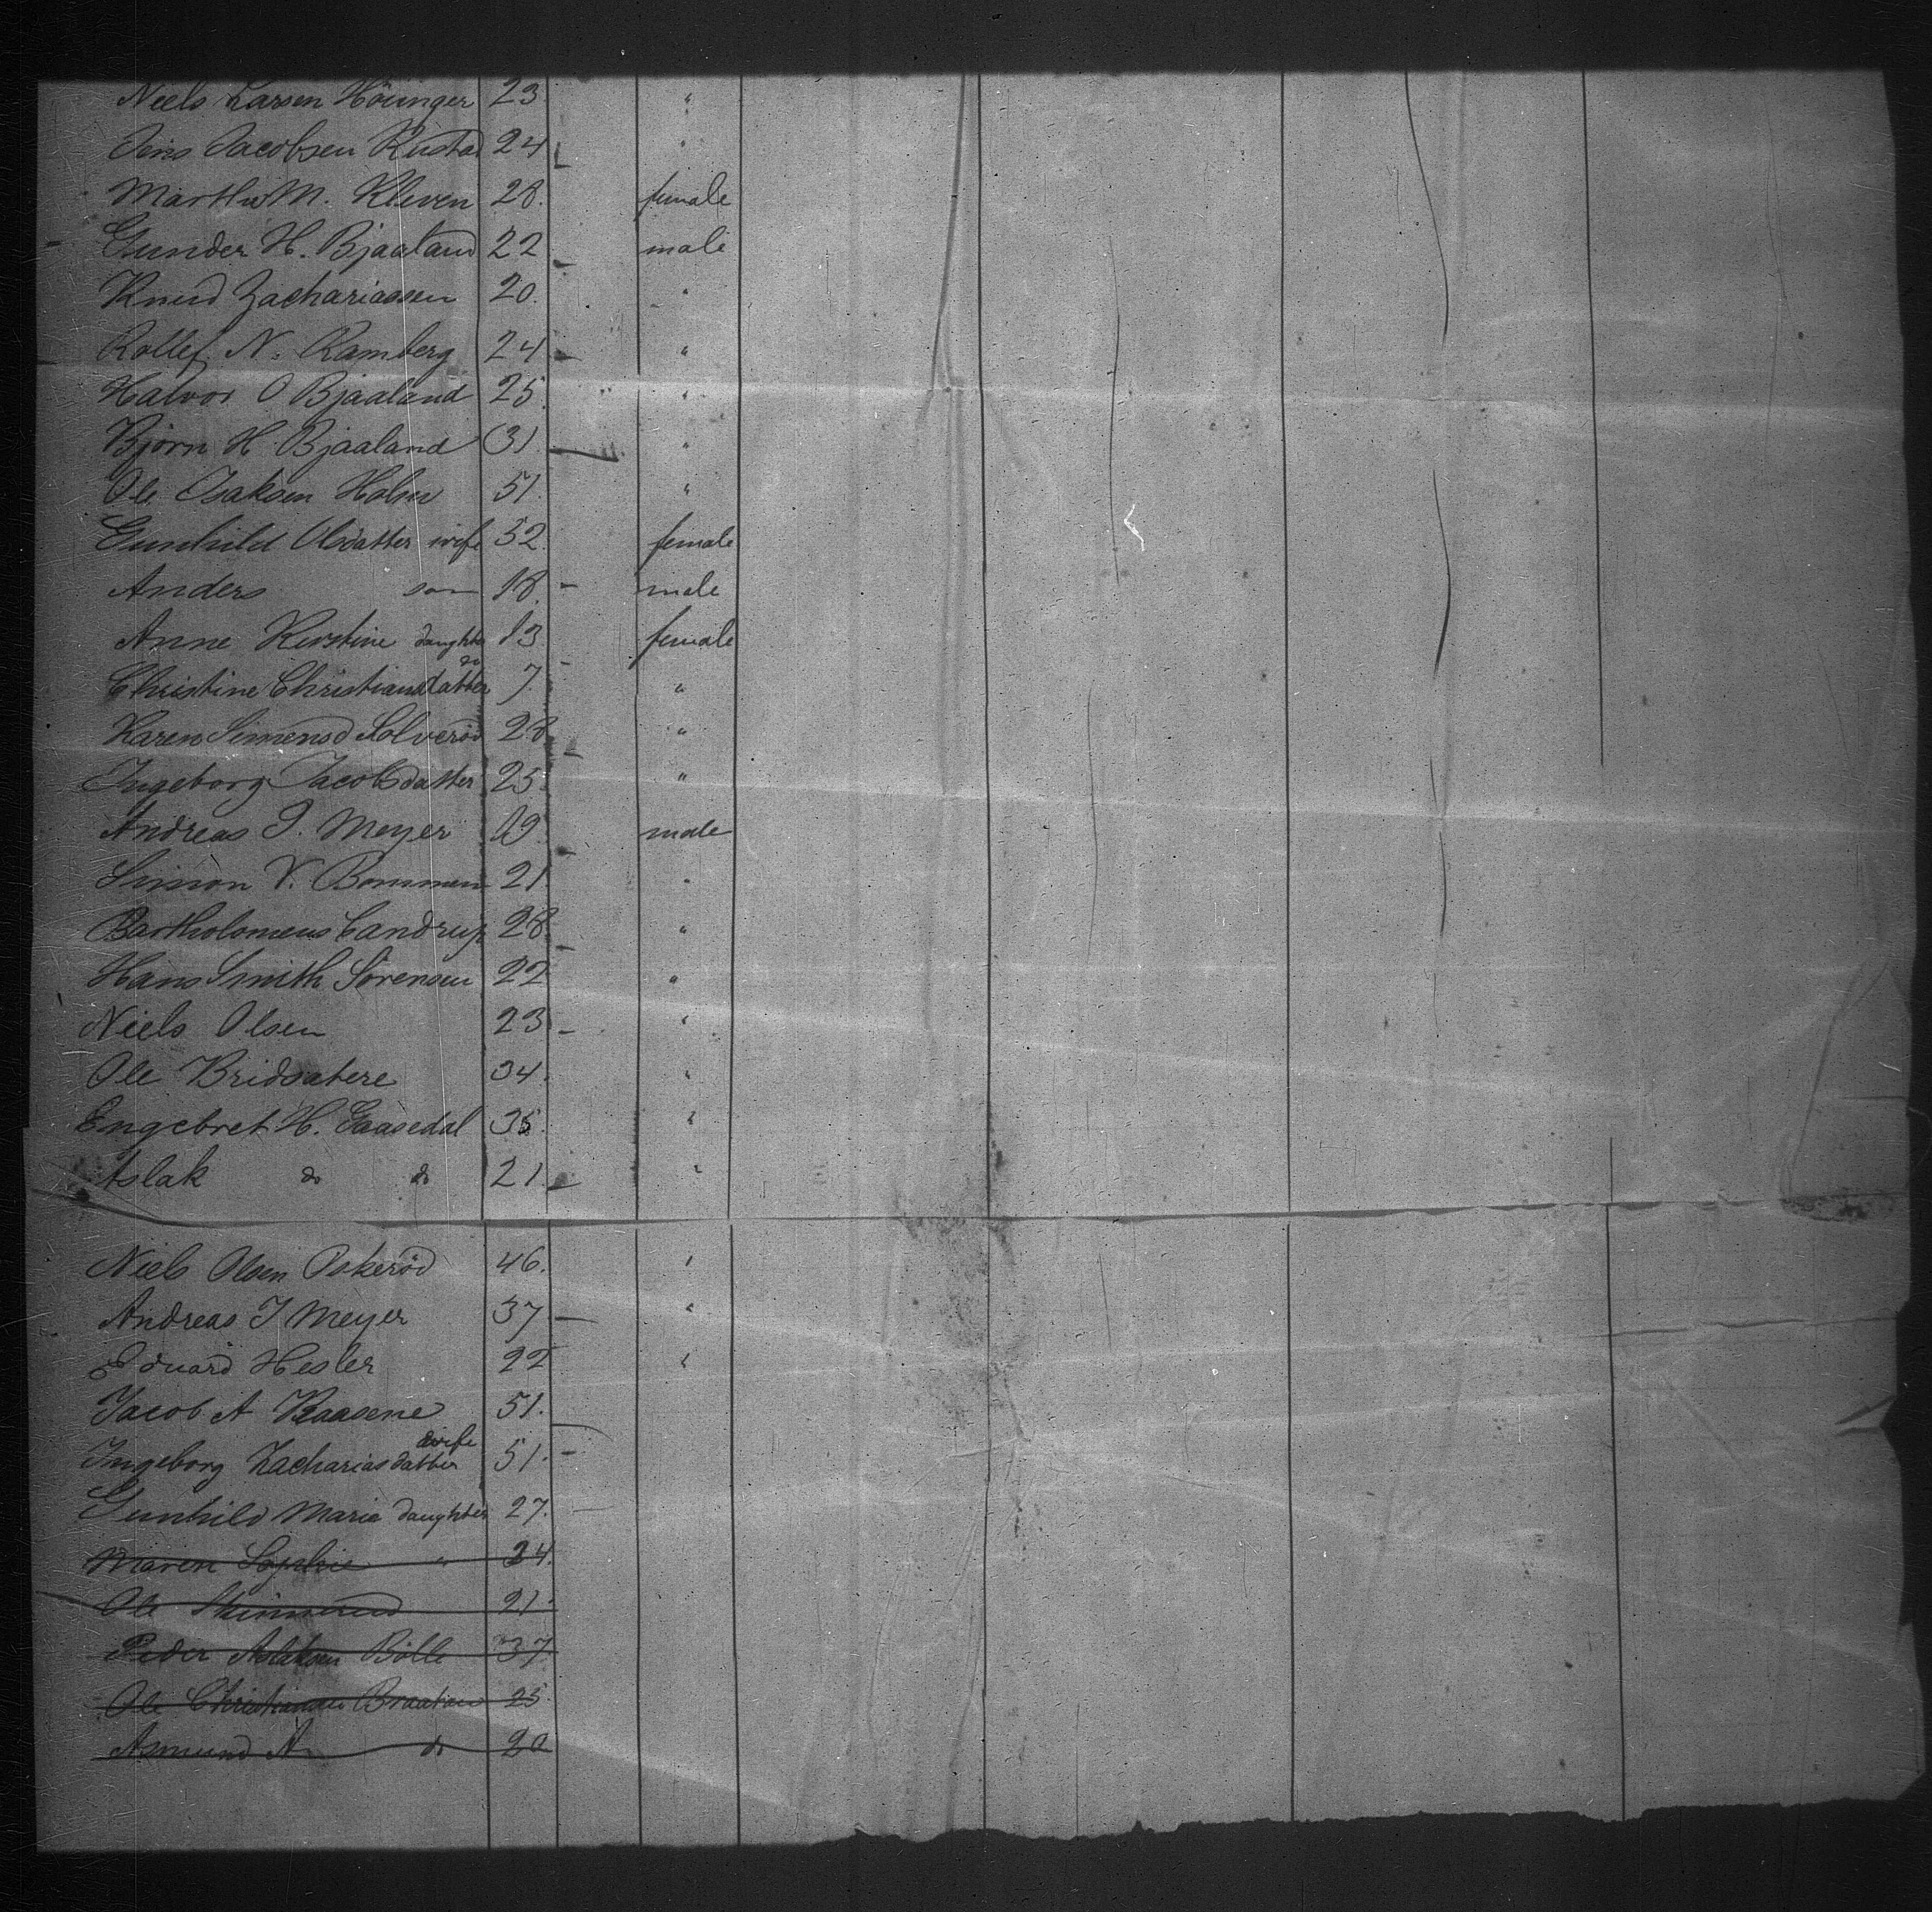 Niels Larsen Höiinger 23 "
Jens Jacobsen Rustad 24 "
Martha M. Kleven 28. female
Gunder H. Bjaaland 22 male
Knud Zachariassen 20. "
Rollef N. Ramberg 24 "
Halvor O Bjaaland 25 "
Björn H. Bjaaland 31 "
Ole Isaksen Holm 51. "
Gunhild Olsdatter wife 52 female
Anders son 18. male
Anne Kirstine daughter 13 female
Christine Christiansdatter do 7. "
Karen Simensd Solveröd 28 "
Ingeborg Jacobsdatter 25 "
Andreas J. Meyer 19. male
Simon V. Bommen 21. "
Bartholomeus Candrup 28 "
Hans Smith Sörensen 22 "
Niels Olsen 23 "
Ole Bridsatere 34. "
Engebret H. Gaasedal 35. "
Aslak do do 21. "
Niels Olsen Askeröd 46. "
Andreas J Meyer 37 "
Eduard Hesler 22 "
Jacob A Kaasene 51.
Ingeborg Zachariasdatter wife 51.
Gunhild Marie daughter 27.
Maren Sophie " 24.
Ole 21.
Peder Aslaksen Bölle 37
Ole Christiansen Braaten 25
Asmund A do 20